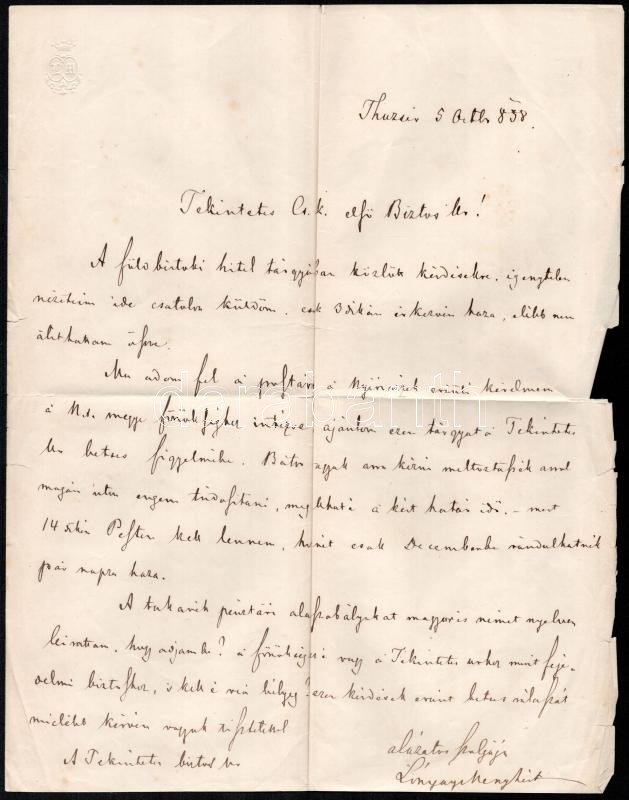 Thuzsér 5 Octbr 858.
Tekintetes Cs. k. első Biztos Ur!
A földbirtoki hitel tárgyában közlött kérdésekre, igénytelen
nézeteim ide csatolva küldöm, csak 3dikán érkezvén haza, elébb nem
állithatám össze.
Ma adom fel a postára a Nyirvizek eránti kérelmem
a N. megye főnökséghez intézve ajánlom ezen tárgyat a Tekintetes
Ur betses figyelmébe. Bátor vagyok arra kérni méltoztassék arról
magán uton engem tudósitani, meglehet é a kért határ idő, – mert
14dikén Pesten kell lennem, honét csak Decemberbe rándulhatnék
pár napra haza.
A takarék pénztári alapszabályokat magyar és német nyelven
leirattam, hogy adjam be? a főnökséghez é vagy a Tekintetes urhoz mint feje-
delmi biztoshoz, s kell é reá bélyeg? ezen kérdések eránt betses válaszát
mielébb kérvén vagyok tisztelettel
A Tekintetes biztos Ur
alázatos szolgája
Lónyay Menyhért
darabanth